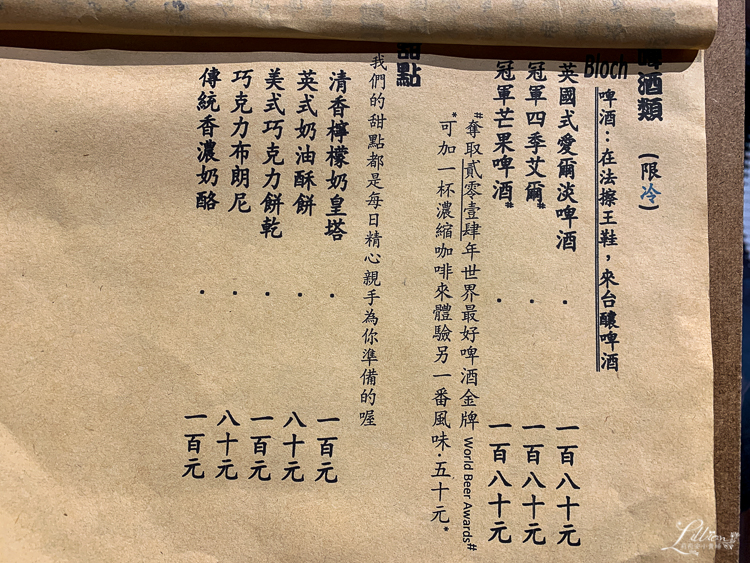 啤酒類 (限冷)
Bloch 啤酒：在法擦王鞋，來台釀啤酒
英國式愛爾淡啤酒 · 一百八十元
冠軍四季艾爾# · 一百八十元
冠軍芒果啤酒# · 一百八十元
#奪取貳零壹肆年世界最好啤酒金牌 World Beer Awards#
*可加一杯濃縮咖啡來體驗另一番風味·五十元*
甜點
我們的甜點都是每日精心親手為你準備的喔
清香檸檬奶皇塔 · 一百元
英式奶油酥餅 · 八十元
美式巧克力餅乾 · 一百元
巧克力布朗尼 · 八十元
傳統香濃奶酪 · 一百元
Lillian